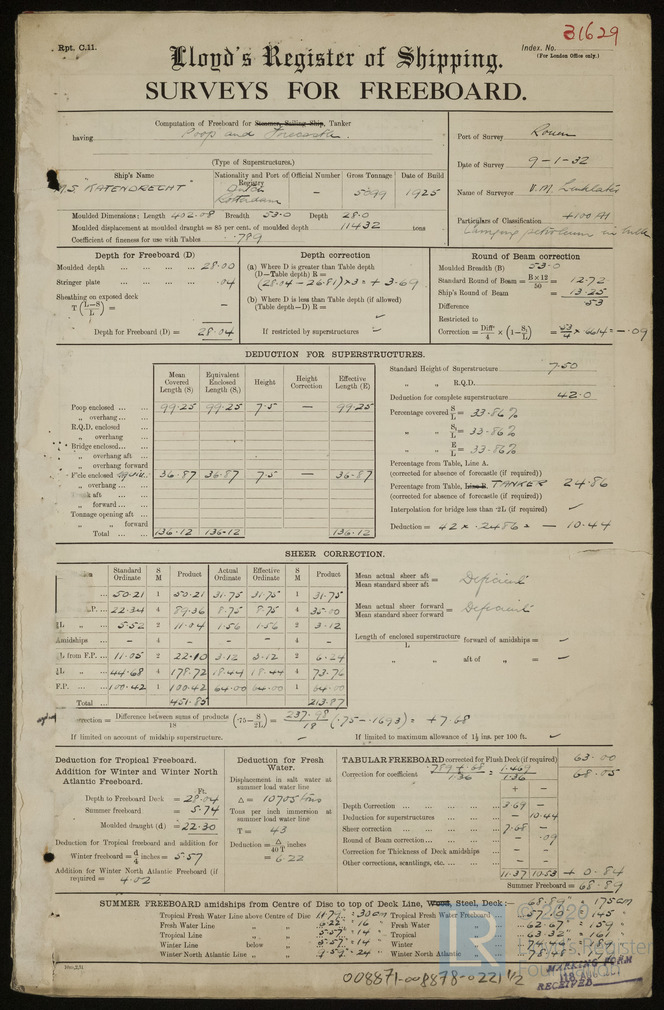 31629
Rpt. C.11.
Index. No.
(For London Office only.)
Lloyd's Register of Shipping.
SURVEYS FOR FREEBOARD.
Computation of Freeboard for Steamer, Sailing Ship, Tanker
having Poop and Forecastle.
(Type of Superstructures.)
Port of Survey Rouen
Date of Survey 9-1-32
Name of Surveyor
Particulars of Classification +100 A1
Carrying petroleum in bulk
Ship's Name Nationality and Port of Registry Official Number Gross Tonnage Date of Build
M.S "KATENDRECHT" Dutch Rotterdam - 5099 1925
Moulded Dimensions: Length 402.08 Breadth 53.0 Depth 28.0
Moulded displacement at moulded draught = 85 per cent. of moulded depth 11432 tons
Coefficient of fineness for use with Tables .789
Depth for Freeboard (D)
Moulded depth ... 28.00
Stringer plate ... .04
Sheathing on exposed deck
T (L-S/L) =
Depth for Freeboard (D) = 28.04
Depth correction
(a) Where D is greater than Table depth
(D-Table depth) R =
(28.04 - 26.81) x 3 = + 3.69
(b) Where D is less than Table depth (if allowed)
(Table depth-D) R =
If restricted by superstructures
Round of Beam correction
Moulded Breadth (B) 53.0
Standard Round of Beam = B×12/50 = 12.72
Ship's Round of Beam = 13.25
Difference .53
Restricted to
Correction = Diff/4 × (1-S₁/L) = .53/4 × .6614 = - .09
DEDUCTION FOR SUPERSTRUCTURES.
Mean Covered Length (S) Equivalent Enclosed Length (S₁) Height Height Correction Effective Length (E)
Poop enclosed ... 99.25 99.25 7.5 - 99.25
" overhang ...
R.Q.D. enclosed
" overhang
Bridge enclosed...
" overhang aft
" overhang forward
F'cle enclosed 36.87 36.87 7.5 - 36.87
" overhang ...
aft ...
" forward ...
Tonnage opening aft ...
" " forward
Total ... 136.12 136.12 136.12
Standard Height of Superstructure 7.50
" " R.Q.D.
Deduction for complete superstructure 42.0
Percentage covered S/L = 33.86%
" " S₁/L = 33.86%
" " E/L = 33.86%
Percentage from Table, Line A.
(corrected for absence of forecastle (if required))
Percentage from Table, Line B. TANKER 24.86
(corrected for absence of forecastle (if required))
Interpolation for bridge less than .2L (if required)
Deduction = 42 x .2486 = - 10.44
SHEER CORRECTION.
Standard Ordinate S M Product Actual Ordinate Effective Ordinate S M Product
50.21 1 50.21 31.75 31.75 1 31.75
22.34 4 89.36 8.75 8.75 4 35.00
5.52 2 11.04 1.56 1.56 2 3.12
Amidships ... - 4 - - - 4 -
L from F.P. ... 11.05 2 22.10 3.12 3.12 2 6.24
44.68 4 178.72 18.44 18.44 4 73.76
F.P. ... 100.42 1 100.42 64.00 64.00 1 64.00
Total ... 451.85 213.87
Mean actual sheer aft / Mean standard sheer aft = Deficient
Mean actual sheer forward / Mean standard sheer forward = Deficient
Length of enclosed superstructure / L forward of amidships =
" " aft of " =
Correction = Difference between sums of products/18 (.75 - S/2L) = 237.98/18 (.75 - .1693) = + 7.68
If limited on account of midship superstructure.
If limited to maximum allowance of 1½ ins. per 100 ft.
Deduction for Tropical Freeboard.
Addition for Winter and Winter North Atlantic Freeboard.
Ft.
Depth to Freeboard Deck = 28.04
Summer freeboard = 5.74
Moulded draught (d) = 22.30
Deduction for Tropical freeboard and addition for
Winter freeboard = d/4 inches = 5.57
Addition for Winter North Atlantic Freeboard (if required) = 4.02
Deduction for Fresh Water.
Displacement in salt water at summer load water line
Δ = 10705 tons
Tons per inch immersion at summer load water line
T = 43
Deduction = Δ/40T inches
= 6.22
TABULAR FREEBOARD corrected for Flush Deck (if required) 63.00
Correction for coefficient .789 + .68/1.36 = 1.469/1.36 68.05
+ -
Depth Correction ... 3.69 -
Deduction for superstructures ... - 10.44
Sheer correction ... 7.68 -
Round of Beam correction... - .09
Correction for Thickness of Deck amidships ... - -
Other corrections, scantlings, etc. ... - -
11.37 10.53 + 0.84
Summer Freeboard = 68.89
SUMMER FREEBOARD amidships from Centre of Disc to top of Deck Line, Wood, Steel, Deck :- 68.89" = 175cm
Tropical Fresh Water Line above Centre of Disc 11.79" = 30cm Tropical Fresh Water Freeboard 57.10 = 145 "
Fresh Water Line " " 6.22" = 16 " Fresh Water " 62.67 = 159 "
Tropical Line " " 5.57" = 14 " Tropical " 63.32 = 161 "
Winter Line below " 5.57" = 14 " Winter "
Winter North Atlantic Line " " 9.59" = 24 " Winter North Atlantic "
© 2020
Lloyd's Register
Foundation
LR
MARKING FORM
RECEIVED
008871-008878-0221 1/2